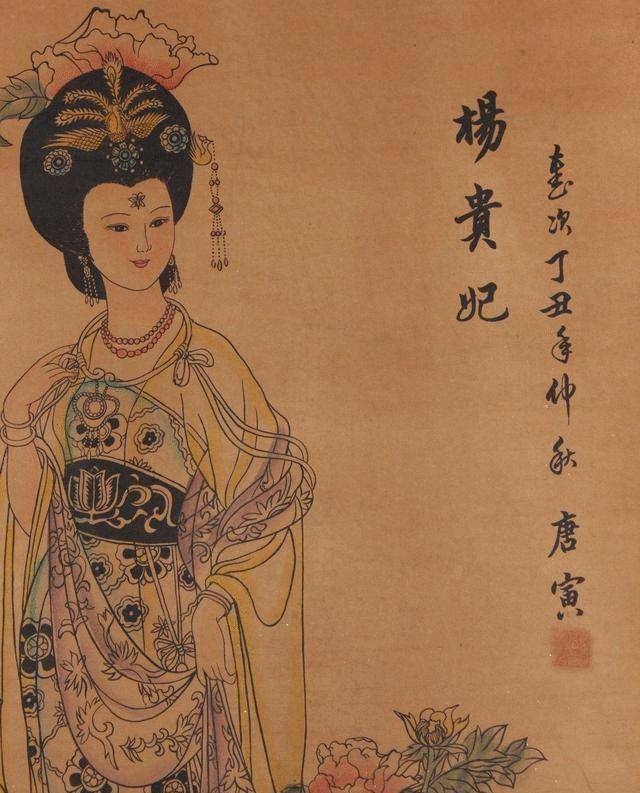 歲次丁丑年仲秋 唐寅
楊貴妃